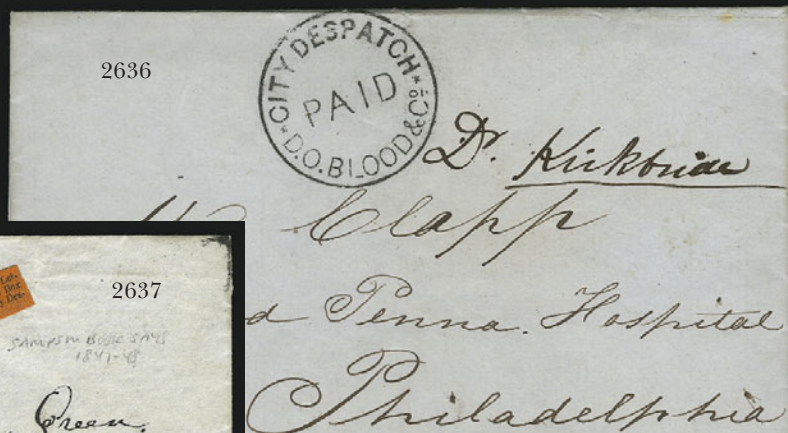 2636
CITY DESPATCH
PAID
D.O. BLOOD & Co
Dr. Kirkbride
Clapp
Penna. Hospital
Philadelphia
2637
SAMPSON BOOK SAYS
1847-48
Green.